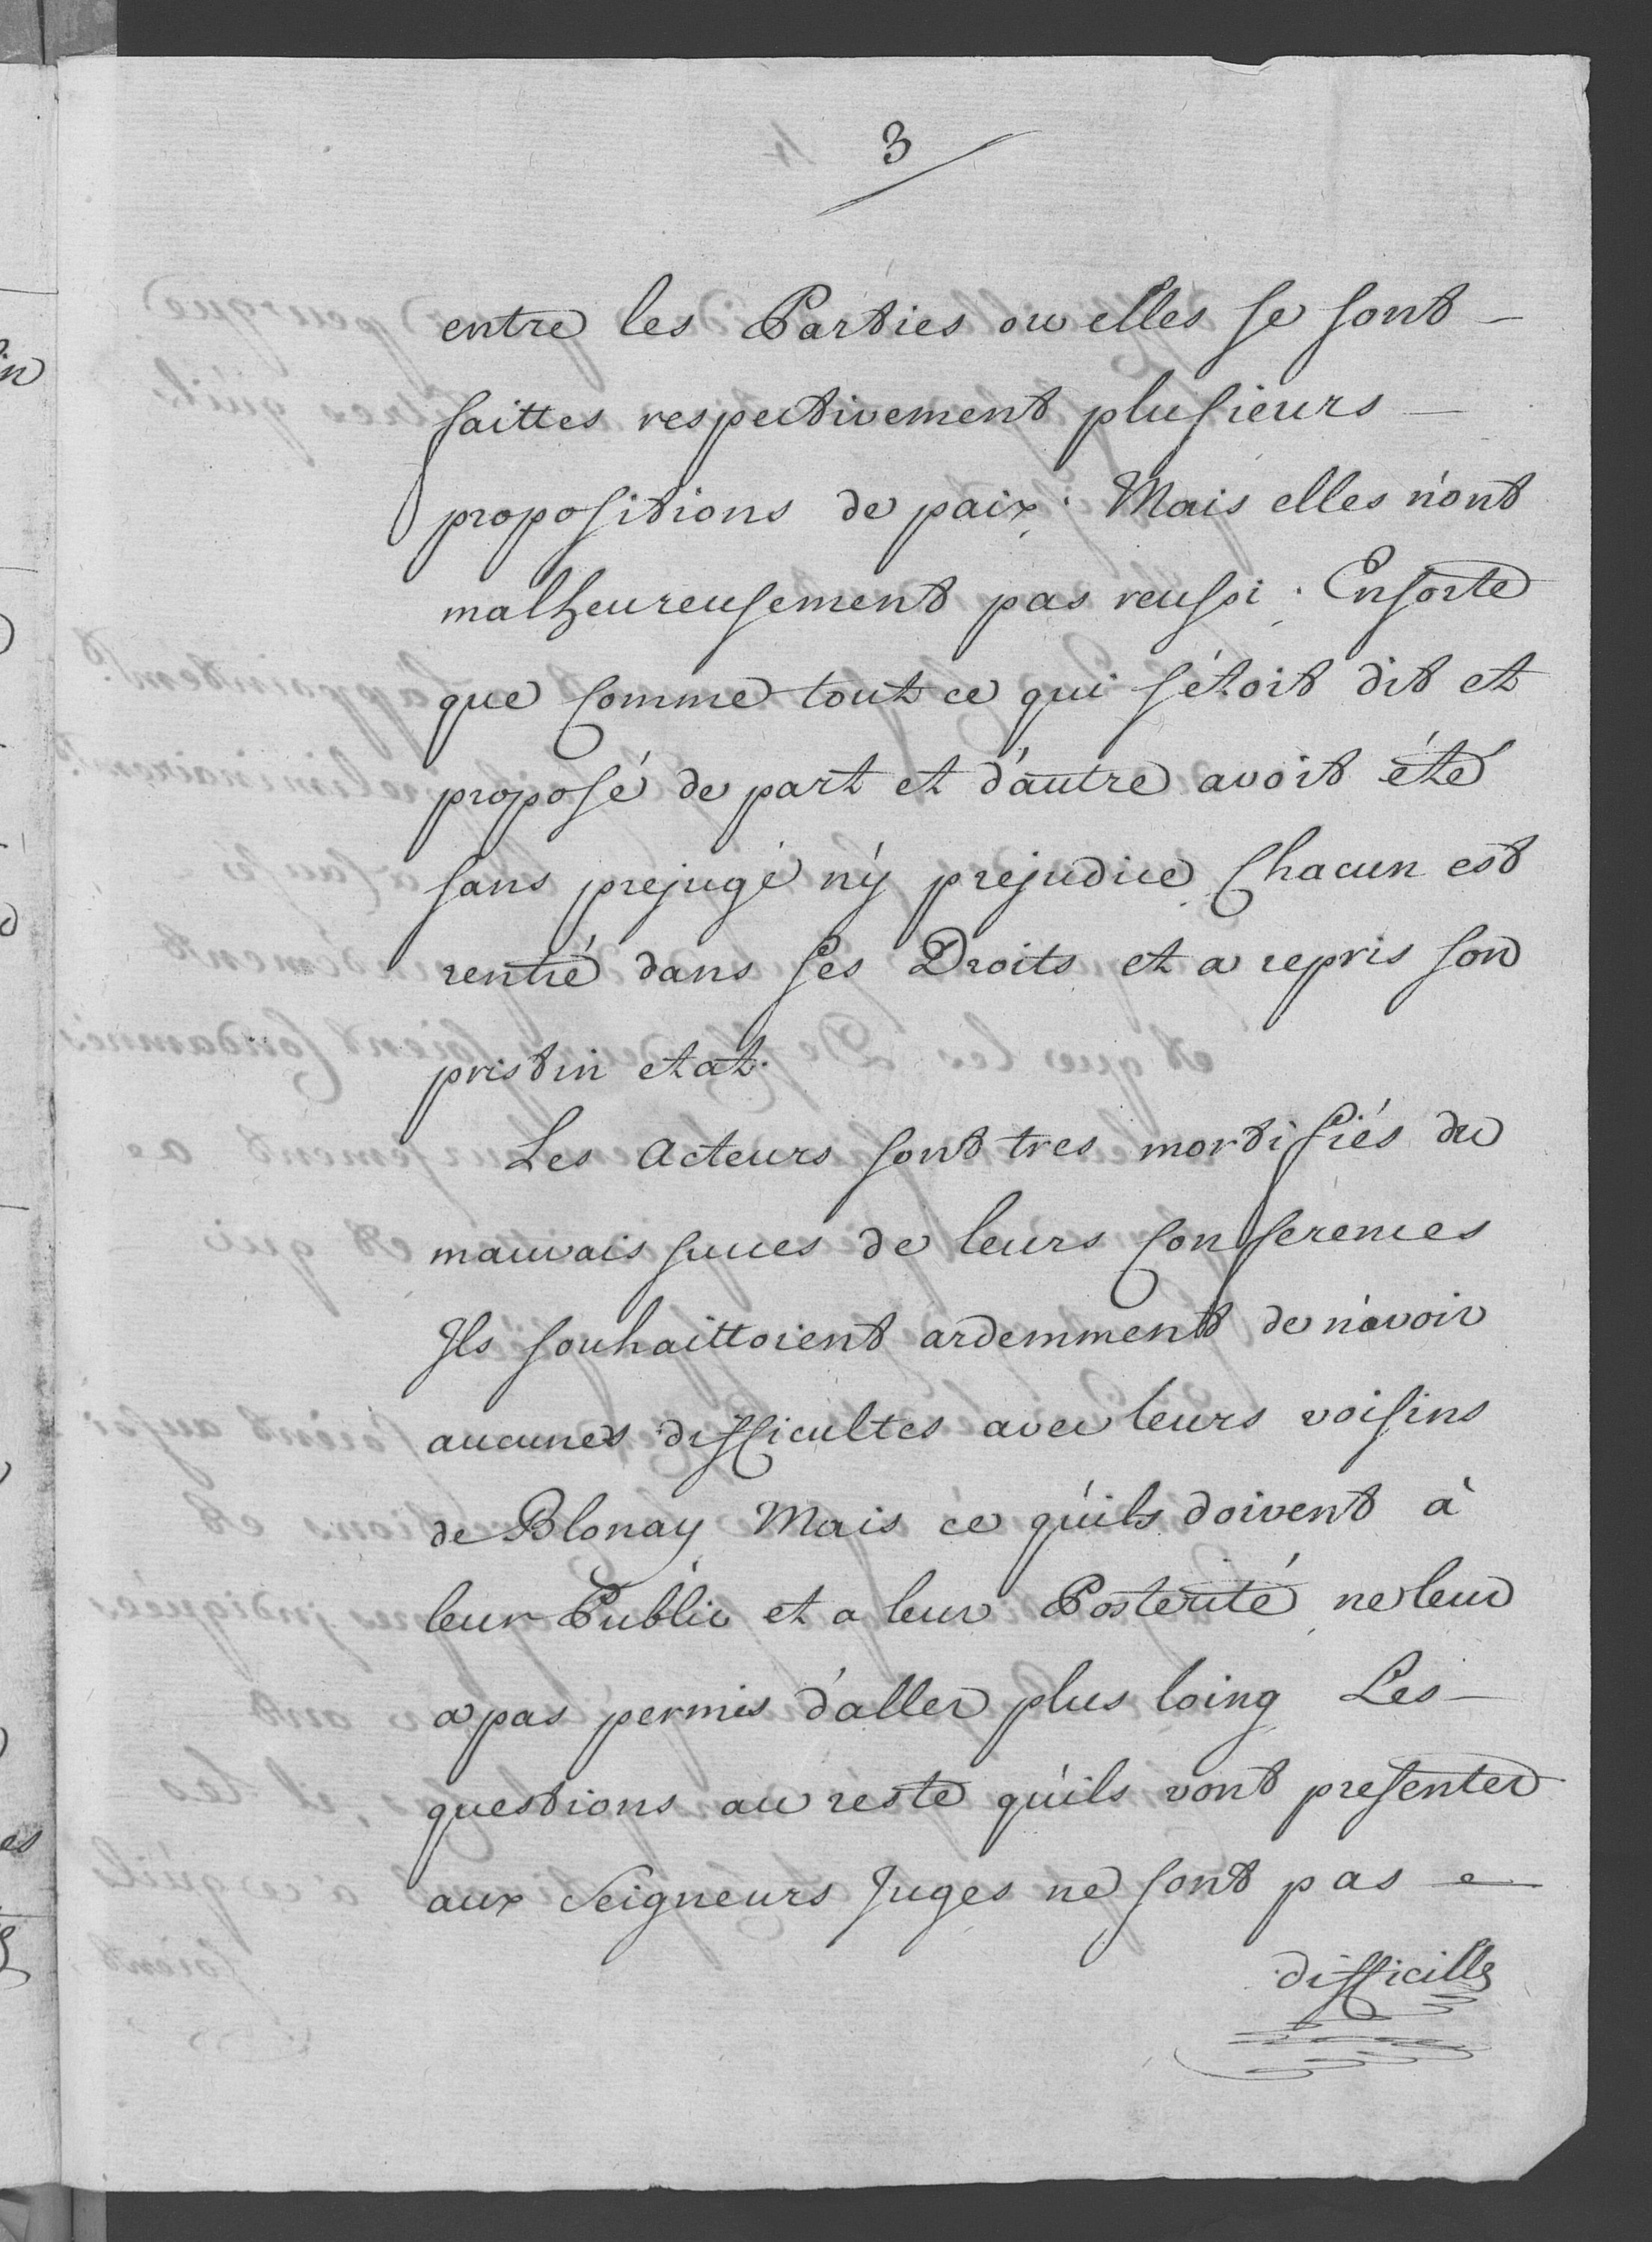 3
entre les Parties ou elles se sont -
faittes respectivement plusieurs -
propositions de paix. Mais elles n'ont
malheureusement pas reussi. Ensorte
que Comme tout ce qui s'étoit dit et
proposé de part et d'autre avoit été
sans prejugé n'y prejudice Chacun est
rentré dans ses Droits et a repris son
pristin etat.
Les Acteurs sont tres mortifiés du
mauvais succes de leurs Conferences
Ils souhaittoient ardemment de n'avoir
aucunes difficultes avec leurs voisins
de Blonay Mais ce qu'ils doivent à
leur Public et a leur Posterité ne leur
a pas permis d'aller plus loing Les -
questions au reste qu'ils vont presenter
aux Seigneurs Juges ne sont pas -
difficilles